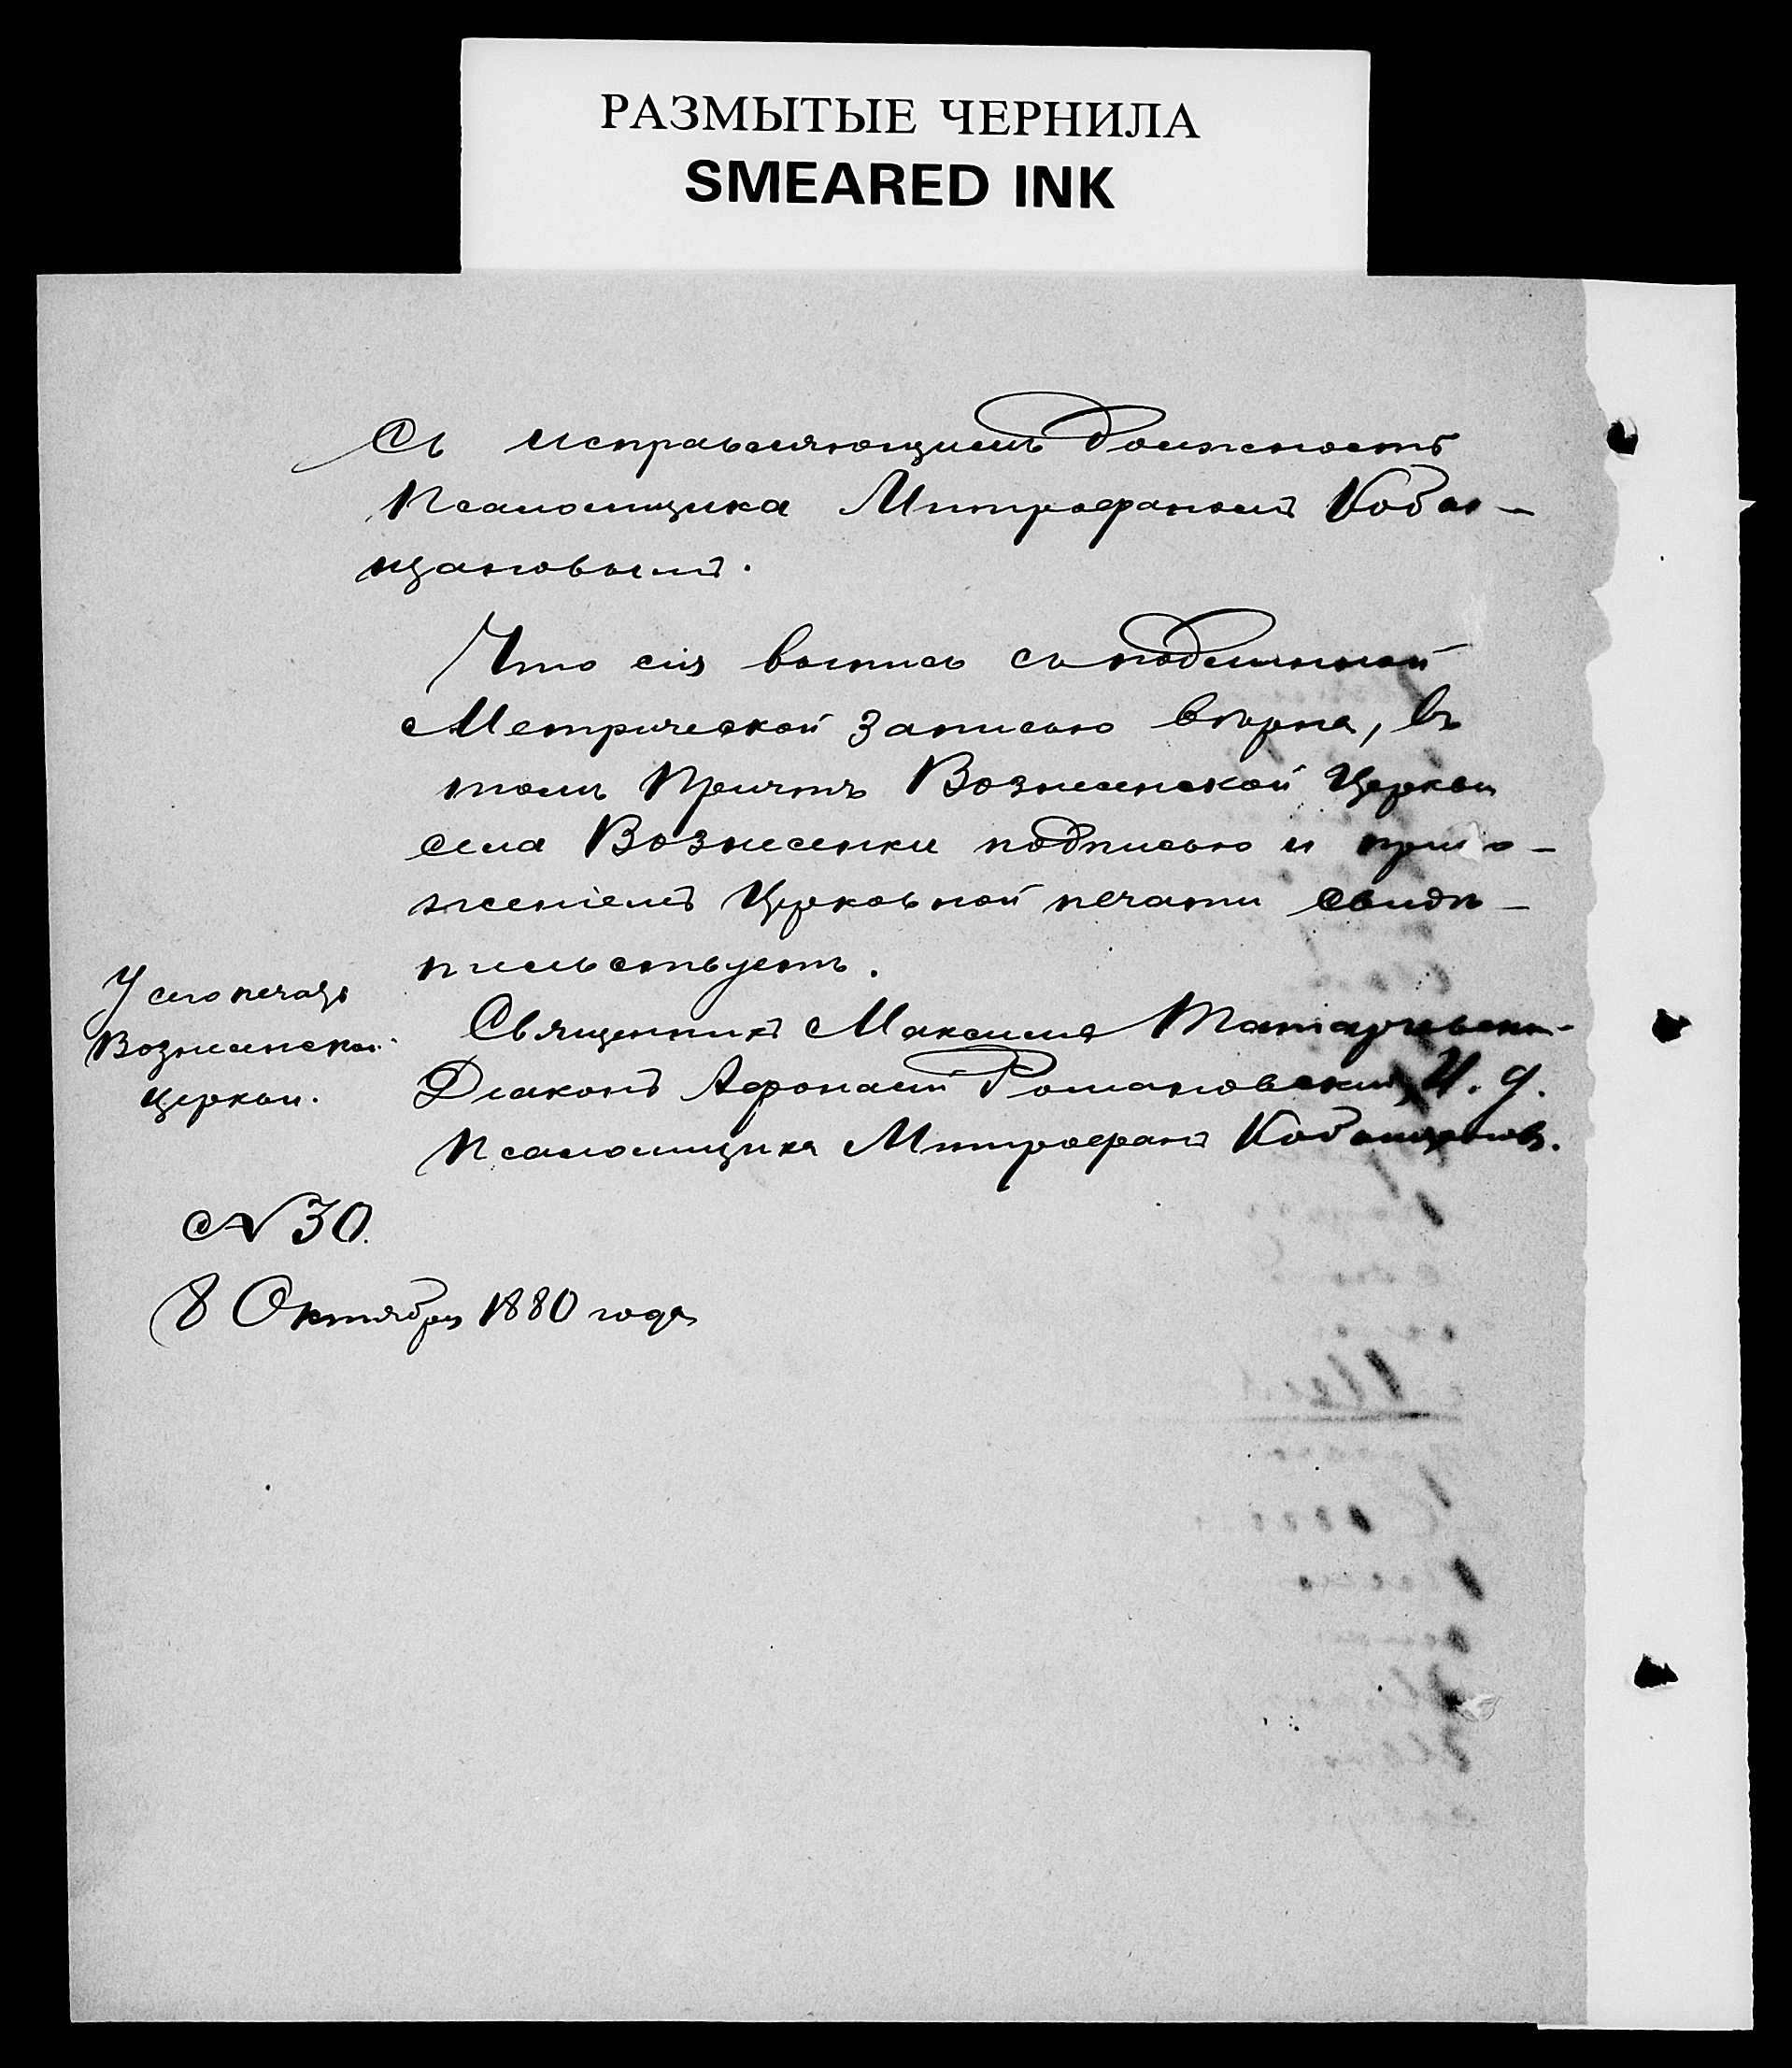 РАЗМЫТЫЕ ЧЕРНИЛА
SMEARED INK
Съ исправляющимъ должность
Псаломщика Митрофаномъ Кобы-
щановымъ.
Что сія выпись съ подлинной
Метрической записью вѣрна, въ
томъ Причтъ Вознесенской Церкви
села Вознесенки подписью и прило-
женіемъ Церковной печати свидѣ-
тельствуетъ.
Священникъ Максимъ
Діаконъ Афонасій Романовскій, И. д.
Псаломщика Митрофанъ Кобыщановъ.
У сего печать
Вознесенской
церкви.
№ 30.
8 Октября 1880 года